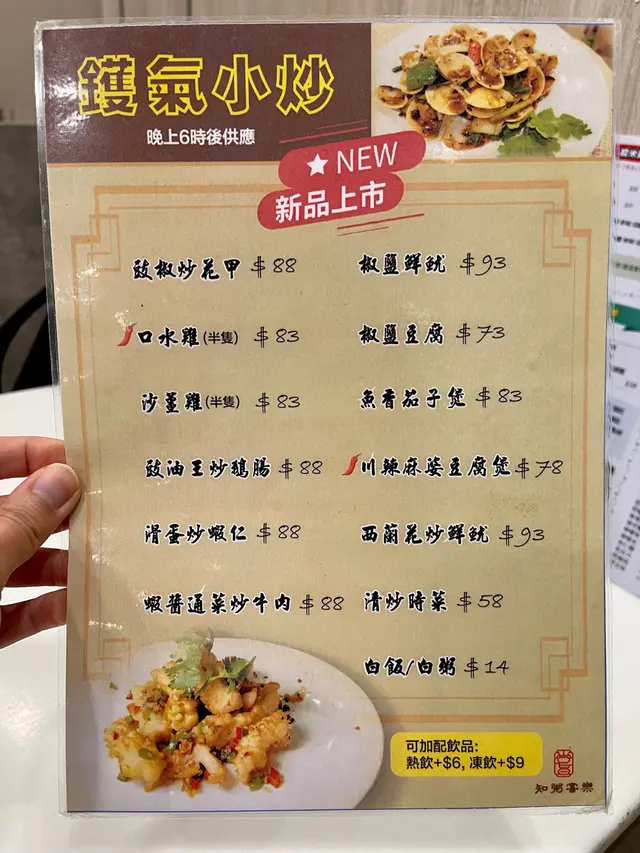 鑊氣小炒
晚上6時後供應
NEW
新品上市
豉椒炒花甲 $88
口水雞(半隻) $83
沙薑雞(半隻) $83
豉油王炒鵝腸 $88
滑蛋炒蝦仁 $88
蝦醬通菜炒牛肉 $88
椒鹽鮮魷 $93
椒鹽豆腐 $73
魚香茄子煲 $83
川辣麻婆豆腐煲 $78
西蘭花炒鮮魷 $93
清炒時菜 $58
白飯/白粥 $14
可加配飲品:
熱飲+$6, 凍飲+$9
知粥常樂